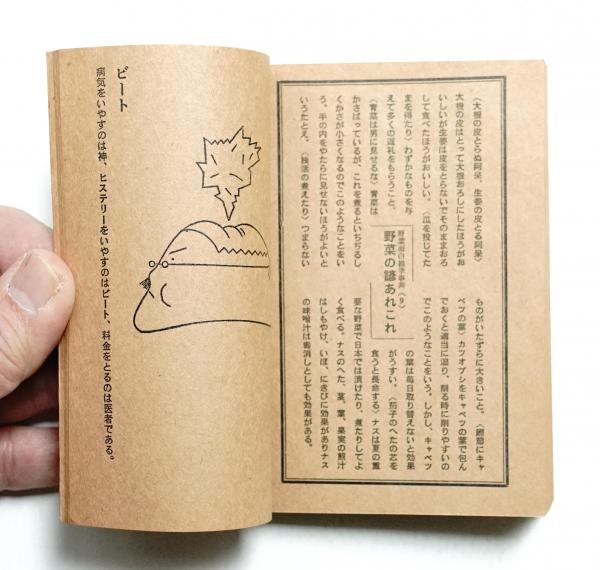 〈大根の皮とらぬ阿呆、生姜の皮とる阿呆〉
大根の皮はとって大根おろしにしたほうがお
いしいが生姜は皮をとらないでそのままおろ
して食べたほうがおいしい。〈瓜を投じてた
まを得たり〉わずかなものを与
えて多くの返礼をもらうこと。
〈青菜は男に見せるな〉青菜は
かさばっているが、これを煮るといちぢるし
くかさが小さくなるのでこのようなことをい
う。手の内をやたらに見せないほうがよいと
いうたとえ。〈独活の煮えたり〉つまらない
野菜面白雑学事典〈9〉
野菜の諺あれこれ
ものがいたずらに大きいこと。〈鰹節にキャ
ベツの葉〉カツオブシをキャベツの葉で包ん
でおくと適当に湿り、削る時に削りやすいの
でこのようなことをいう。しかし、キャベツ
の葉は毎日取り替えないと効果
がうすい。〈茄子のへたの芯を
食うと長命する〉ナスは夏の重
要な野菜で日本では漬けたり、煮たりしてよ
く食べる。ナスのへた、茎、葉、果実の煎汁
はしもやけ、いぼ、にきびに効果がありナス
の味噌汁は毒消しとしても効果がある。
ビート
病気をいやすのは神、ヒステリーをいやすのはビート、料金をとるのは医者である。